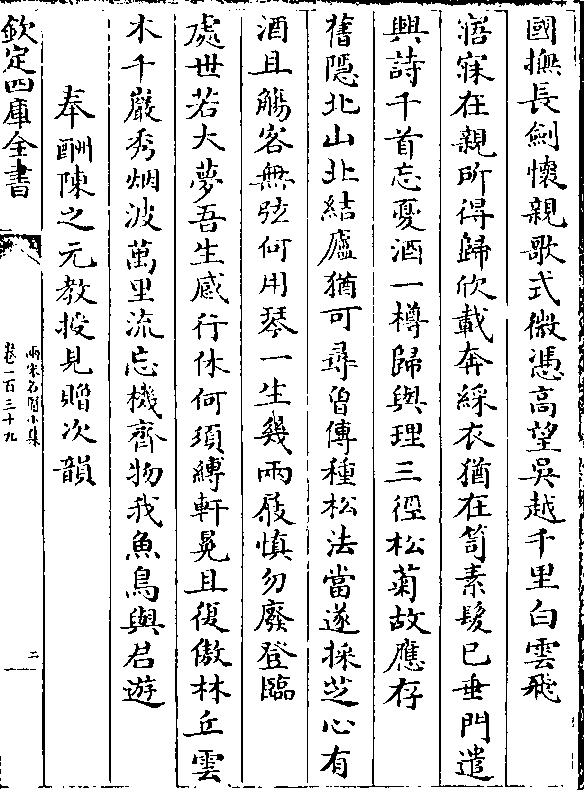 國撫長劍懷親歌式微憑高望吳越千里白雲飛
寤寐在親所得歸欣載奔綵衣猶在笥素髮已垂門遣
興詩千首忘憂酒一樽歸與理三徑松菊故應存
舊隱北山北結廬猶可尋曾傳種松法當遂採芝心有
酒且觴客無弦何用琴一生幾兩屐慎勿廢登臨
處世若大夢吾生感行休何須縛軒冕且復傲林丘雲
木千巖秀烟波萬里流忘機齊物我魚鳥與君遊
奉酬陳之元教授見贈次韻
欽定四庫全書
兩宋名賢小集
卷一百三十九
二